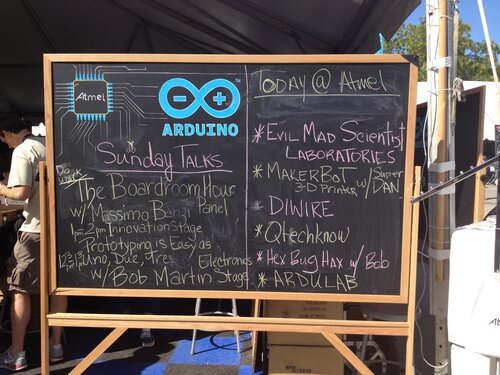 Atmel
ARDUINO
Sunday Talks
The Boardroom Hour
w/ Massimo Banzi Panel
1pm-2pm Innovation Stage
Prototyping is Easy as
Uno, Due, Tre, Electronics
w/ Bob Martin Stage
TODAY @ Atmel
* EVIL MAD SCIENTIST
LABORATORIES
* MAKERBOT w/ Super
3-D Printer DAN
* DIWIRE
* Qtechknow
* HEX BUG HAX w/ Bob
* ARDULAB